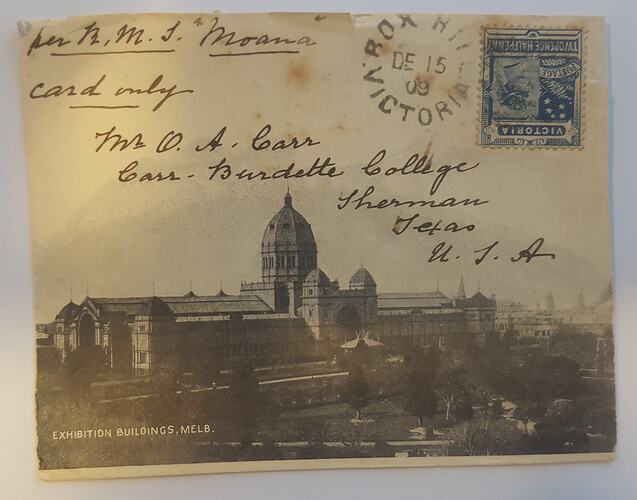 per R. M. S "Moana"
card only
BOX HILL
DE 15
09
VICTORIA
TWOPENCE HALFPENNY
POSTAGE
VICTORIA
Mr O. A. Carr
Carr-Burdette College
Sherman
Texas
U. S. A
EXHIBITION BUILDINGS, MELB.